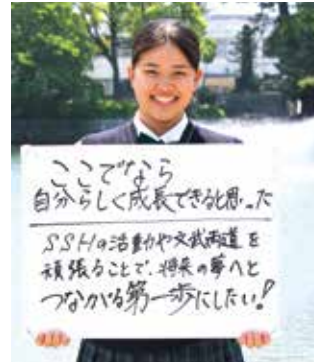 ここでなら
自分らしく成長できると思った
SSHの活動や文武両道を
頑張ることで、将来の夢へと
つながる第一歩にしたい!